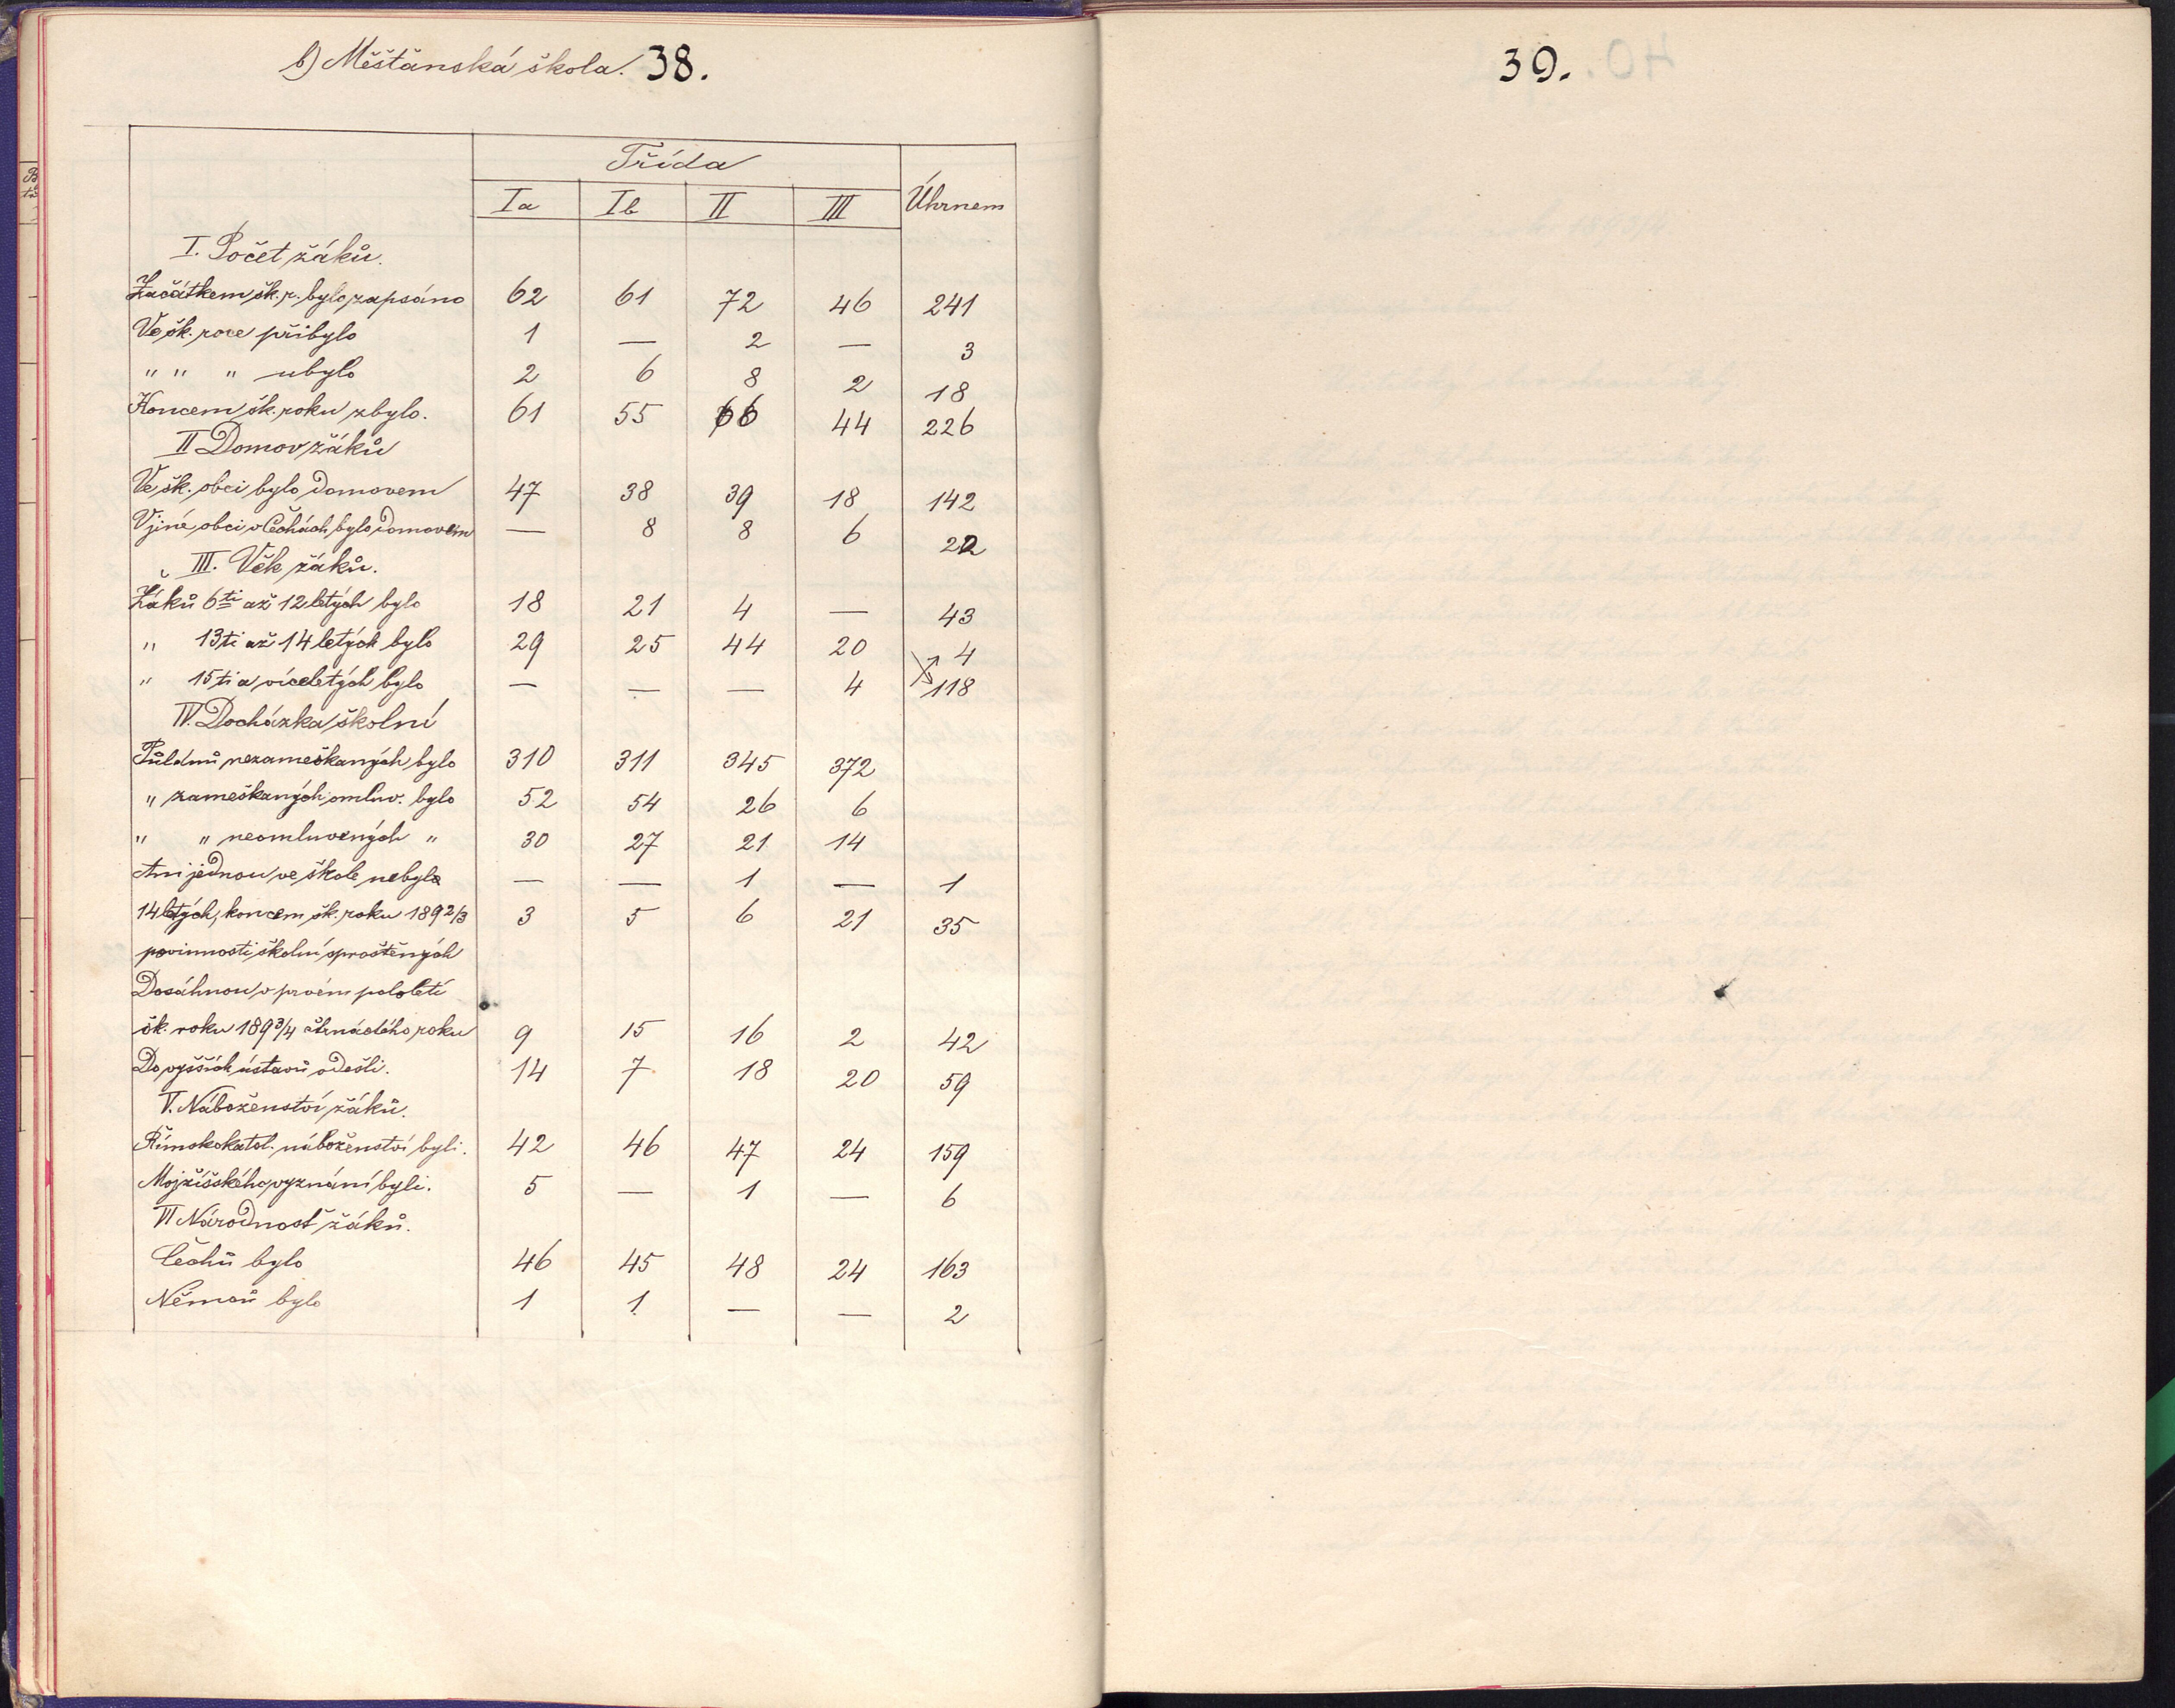 b) Měšťanská škola. 38.
Třída
Ia Ib II III Úhrnem
I. Počet žáků.
Začátkem šk. r. bylo zapsáno 62 61 72 46 241
Ve šk. roce přibylo 1 — 2 — 3
" " " ubylo 2 6 8 2 18
Koncem šk. roku zbylo. 61 55 66 44 226
II Domov žáků
Ve šk. obci bylo domovem 47 38 39 18 142
V jiné obci v Čechách bylo domovem — 8 8 6 22
III. Věk žáků.
Žáků 6ti až 12letých bylo 18 21 4 — 43
" 13ti až 14letých bylo 29 25 44 20 4
" 15ti a víceletých bylo — — — 4 118
IV. Docházka školní
Půldnů nezameškaných bylo 310 311 345 372
" zameškaných omluv. bylo 52 54 26 6
" " neomluvených " 30 27 21 14
Ani jednou ve škole nebyla — — 1 — 1
14letých, koncem šk. roku 1892/3 3 5 6 21 35
povinnosti školní sproštěných
Dosáhnou v prvém pololetí
šk. roku 1893/4 čtrnáctého roku 9 15 16 2 42
Do vyšších ústavů odešli. 14 7 18 20 59
V. Náboženství žáků.
Římskokatol. náboženství byli. 42 46 47 24 159
Mojžíšského vyznání byli. 5 — 1 — 6
VI Národnosť žáků.
Čechů bylo 46 45 48 24 163
Němců bylo 1 1 — — 2
39.